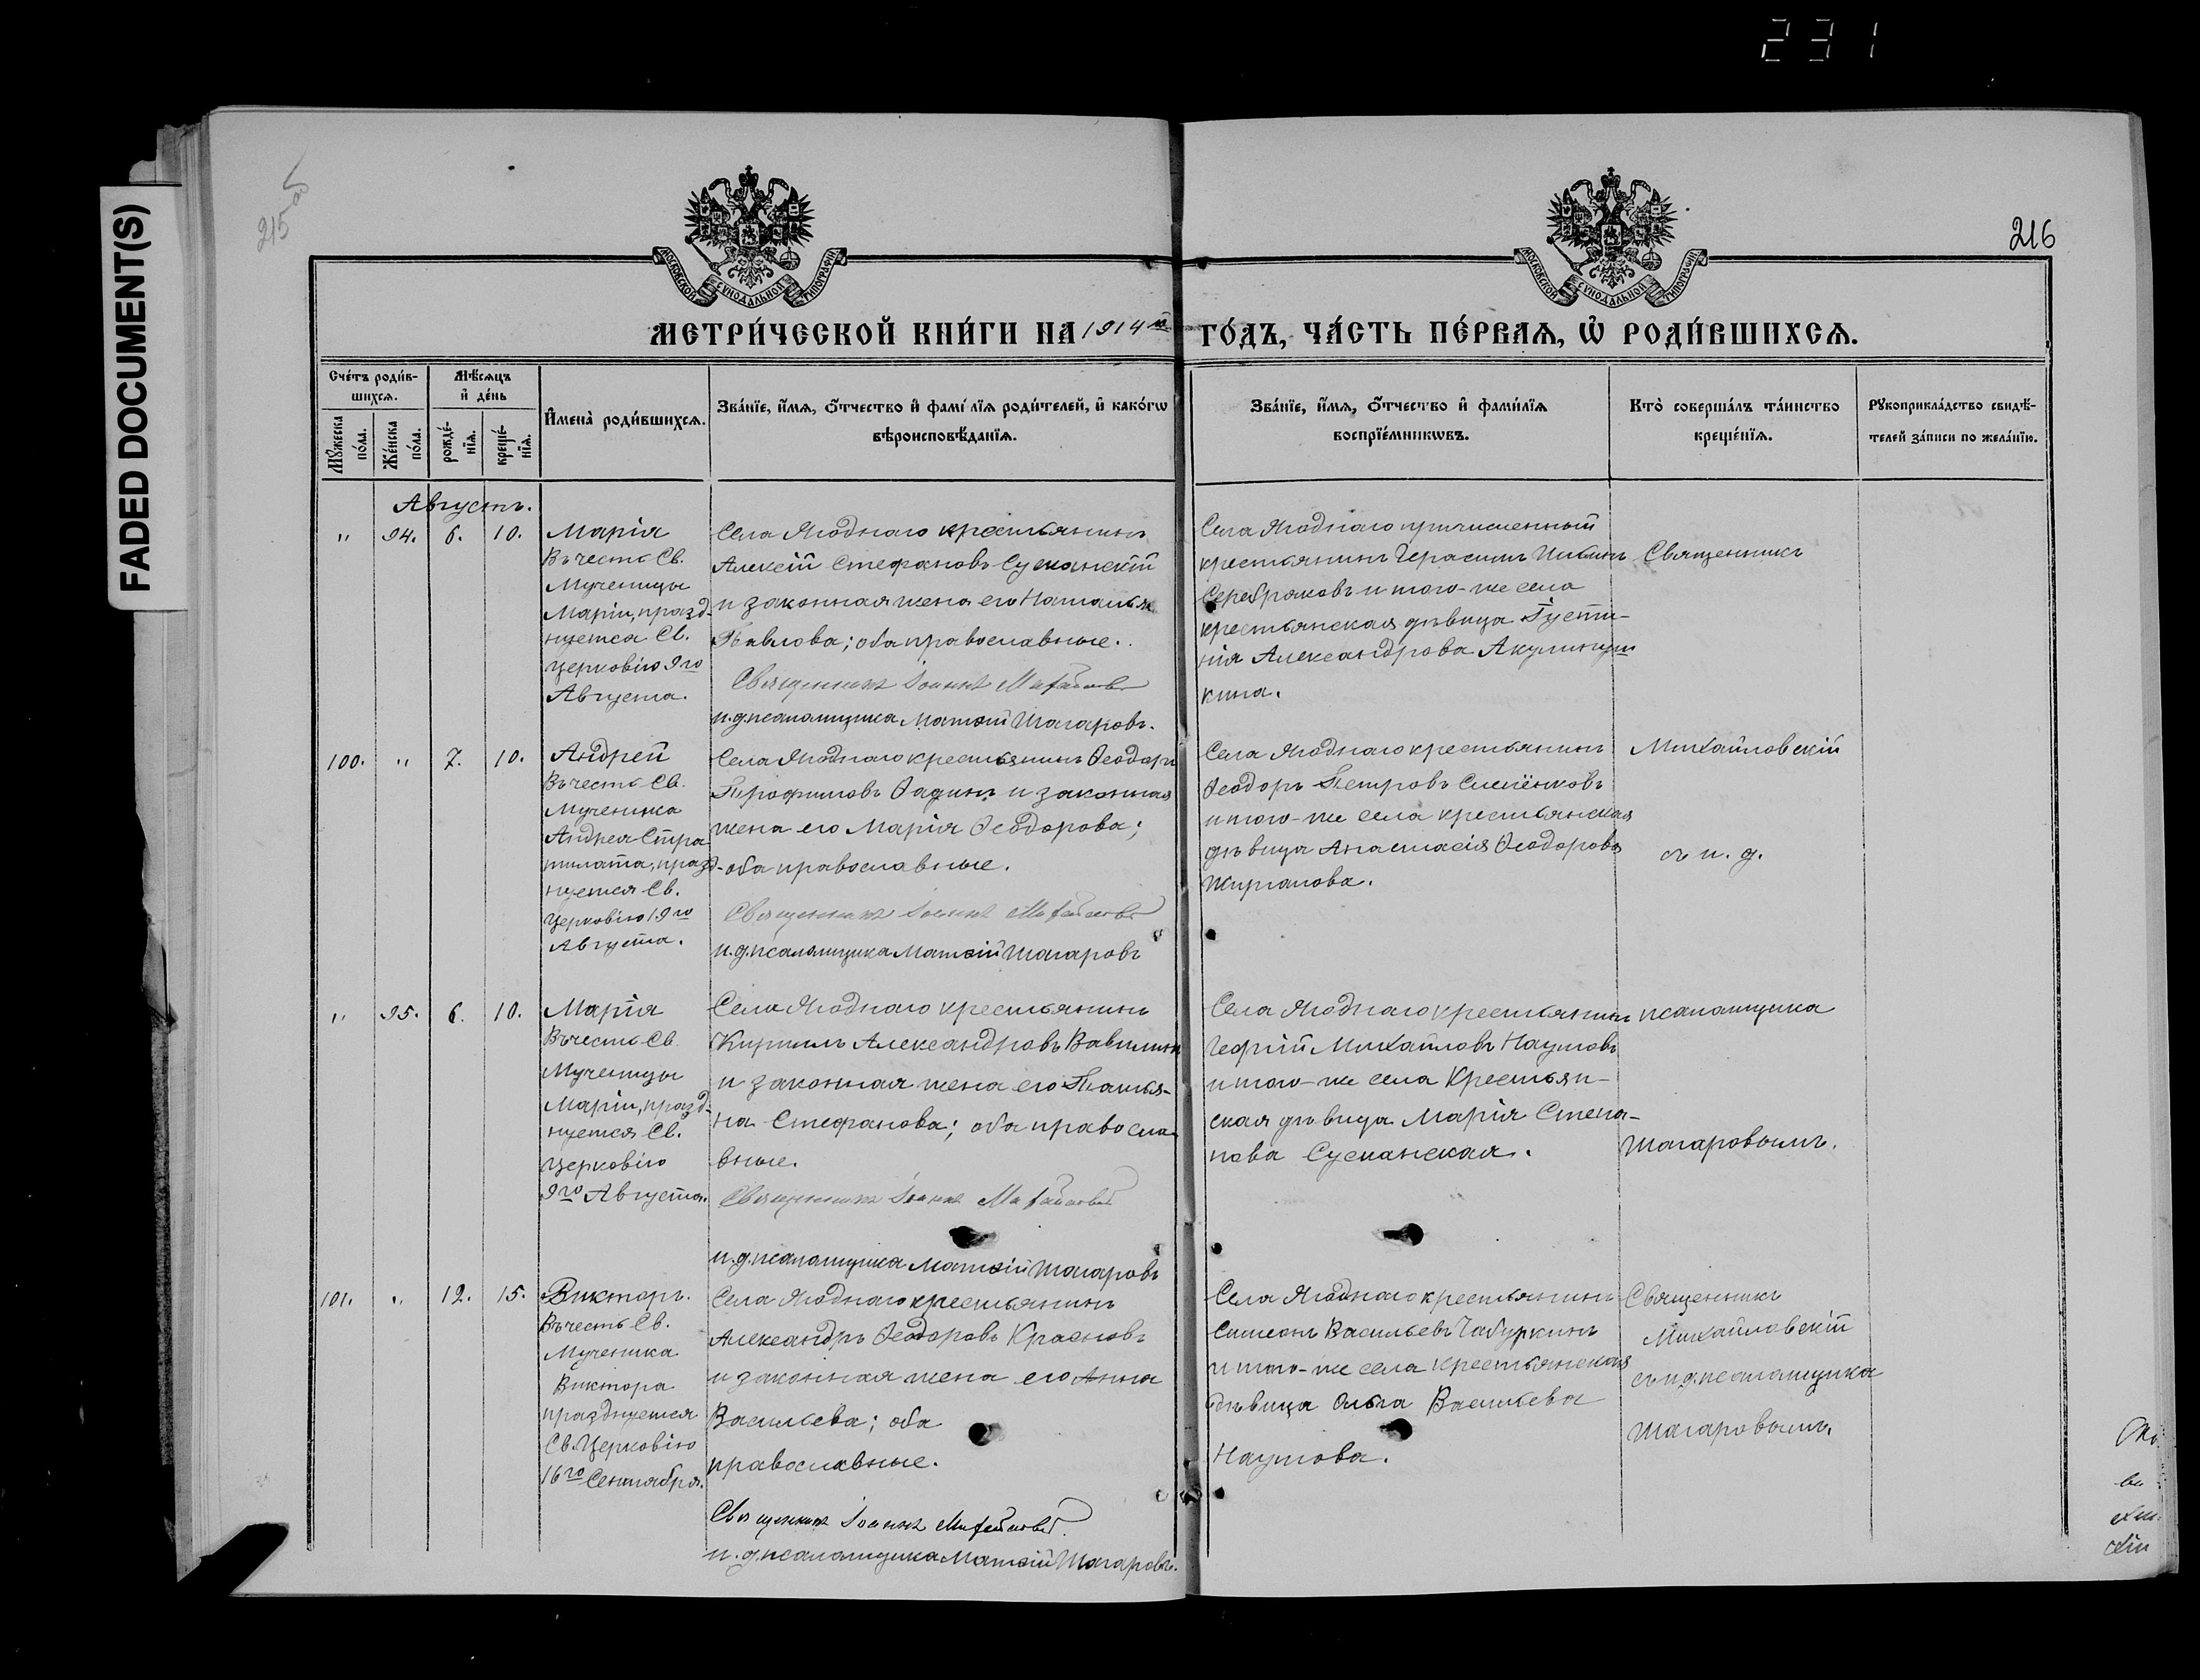 231
FADED DOCUMENT(S)
215 об
216
МОСКОВСКОЙ СУНОДАЛЬНОЙ ТИПОГРАФІИ
МОСКОВСКОЙ СУНОДАЛЬНОЙ ТИПОГРАФІИ
МЕТРИ́ЧЕСКОЙ КНИ́ГИ НА 1914 й ГО́ДЪ, ЧА́СТЬ ПЕ́РВАѦ, Ѽ РОДИ́ВШИХСѦ.
Сче́тъ роди́в-
шихсѧ.
Мꙋжеска
по́ла.
Же́нска
по́ла.
Мѣ́сѧцъ
и҆ де́нь
рожде́-
нїѧ.
креще́-
нїѧ.
И҆мена̀ роди́вшихсѧ.
Зва́нїе, и҆́мѧ, ѻ҆́тчество и҆ фамі́лїѧ роди́телей, и҆ како́гѡ
вѣроисповѣ́данїѧ.
Зва́нїе, и҆́мѧ, ѻ҆́тчество и҆ фами́лїѧ
воспрїе́мникѡвъ.
Кто̀ соверша́лъ та́инство
креще́нїѧ.
Рꙋкоприкла́дство свидѣ́-
телей за́писи по жела́нїю.
Августъ.
" 94. 6. 10.
Марія
Въ честь Св.
Мученицы
Маріи, празд-
нуется Св.
Церковію 9го
Августа.
Села Ягоднаго крестьянинъ
Алексій Стефановъ Сусканскій
и законная жена его Наталья
Павлова; оба православные.
Священникъ Іоаннъ Михайловскій
и.д.псаломщика Матѳій Шагаровъ.
Села Ягоднаго причисленный
крестьянинъ Герасимъ
Серебряковъ и того-же села
крестьянская дѣвица Густи-
нія Александрова Акулинуш
кина.
Священникъ
100. " 7. 10.
Андрей
Въ честь Св.
Мученика
Андрея Стра
тилата, празд-
нуется Св.
Церковію 19го
Августа.
Села Ягоднаго крестьянинъ Ѳеодоръ
Трофимовъ Ѳадинъ и законная
жена его Марія Ѳеодорова;
оба православные.
Священникъ Іоаннъ Михайловскій
и.д.псаломщика Матѳій Шагаровъ
Села Ягоднаго крестьянинъ
Ѳеодоръ Петровъ
и того-же села крестьянская
дѣвица Анастасія Ѳеодорова
Михайловскій
съ и. д.
" 95. 6. 10.
Марія
Въ честь Св.
Мученицы
Маріи, празд-
нуется Св.
Церковію
9го Августа.
Села Ягоднаго крестьянинъ
Кириллъ Александровъ Вавилинъ
и законная жена его Татья-
на Стефанова; оба правосла
вные.
Священникъ Іоаннъ Михайловскій
и.д.псаломщика Матѳій Шагаровъ
Села Ягоднаго крестьянинъ
Георгій Михайловъ Наумовъ
и того-же села Крестьян-
ская дѣвица Марія Степа-
нова Сусканская.
псаломщика
Шагаровымъ.
101. " 12. 15.
Викторъ.
Въ честь Св.
Мученика
Виктора
празднуется
Св. Церковію
16го Сентября.
Села Ягоднаго крестьянинъ
Александръ Ѳеодоровъ Красновъ
и законная жена его Анна
Васильева; оба
православные.
Священникъ Іоаннъ Михайловскій.
и.д.псаломщика Матѳій Шагаровъ.
Села Ягоднаго крестьянинъ
Симеонъ Васильевъ Чабуркинъ
и того-же села крестьянская
дѣвица Ольга Васильева
Наумова.
Священникъ
Михайловскій
съ и.д.псаломщика
Шагаровымъ.